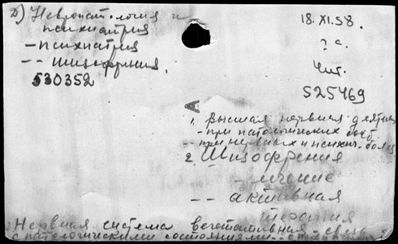 б) Невропатология и
психиатрия
- психиатрия
- - шизофрения.
530352
18.XI.58.
? с.
Чит.
525469
A
1. Высшая нервная деятельн
- при патологических сост
- при нервных и психич. болез
2. Шизофрения
- лечение
- - активная
терапия
Нервная система вегетативная - связь
с патологическими состояниями